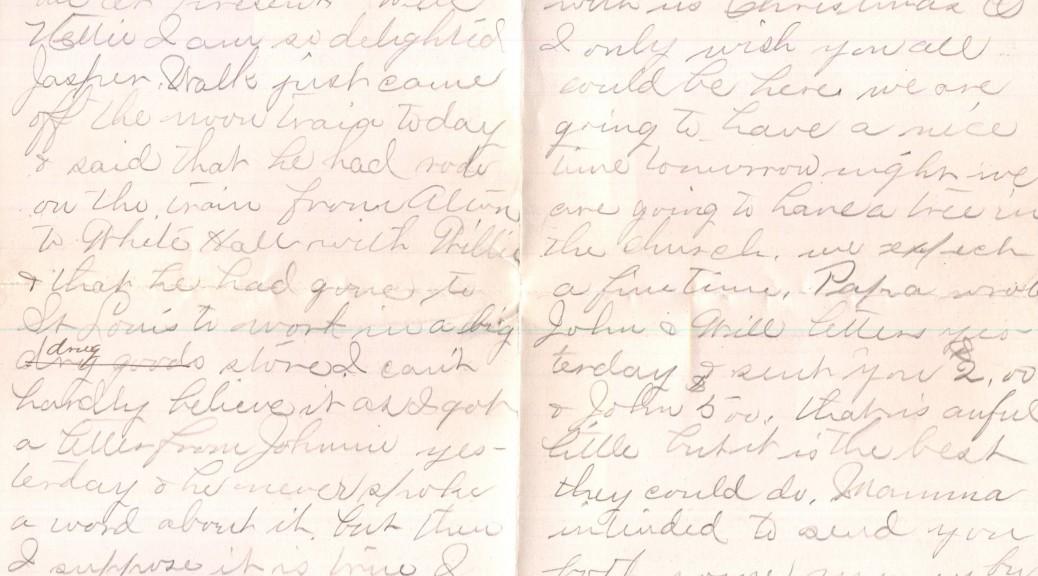 at present well
Nellie I am so delighted
Jasper Walk just came
off the noon train today
& said that he had rode
on the train from Alton
to White Hall with Willie
& that he had gone to
St Louis to work in a big
drug
dry goods store. I can't
hardly believe it as I got
a letter from Johnnie yes-
terday & he never spoke
a word about it, but then
I suppose it is true I
with us Christmas
I only wish you all
could be here we are
going to have a nice
time tomorrow night we
are going to have a tree in
the church. we expect
a fine time. Papa wrote
John & Will letters yes-
terday & sent you $2.00
& John 5 00, that is anful
little but it is the best
they could do. Mamma
intended to send you
both